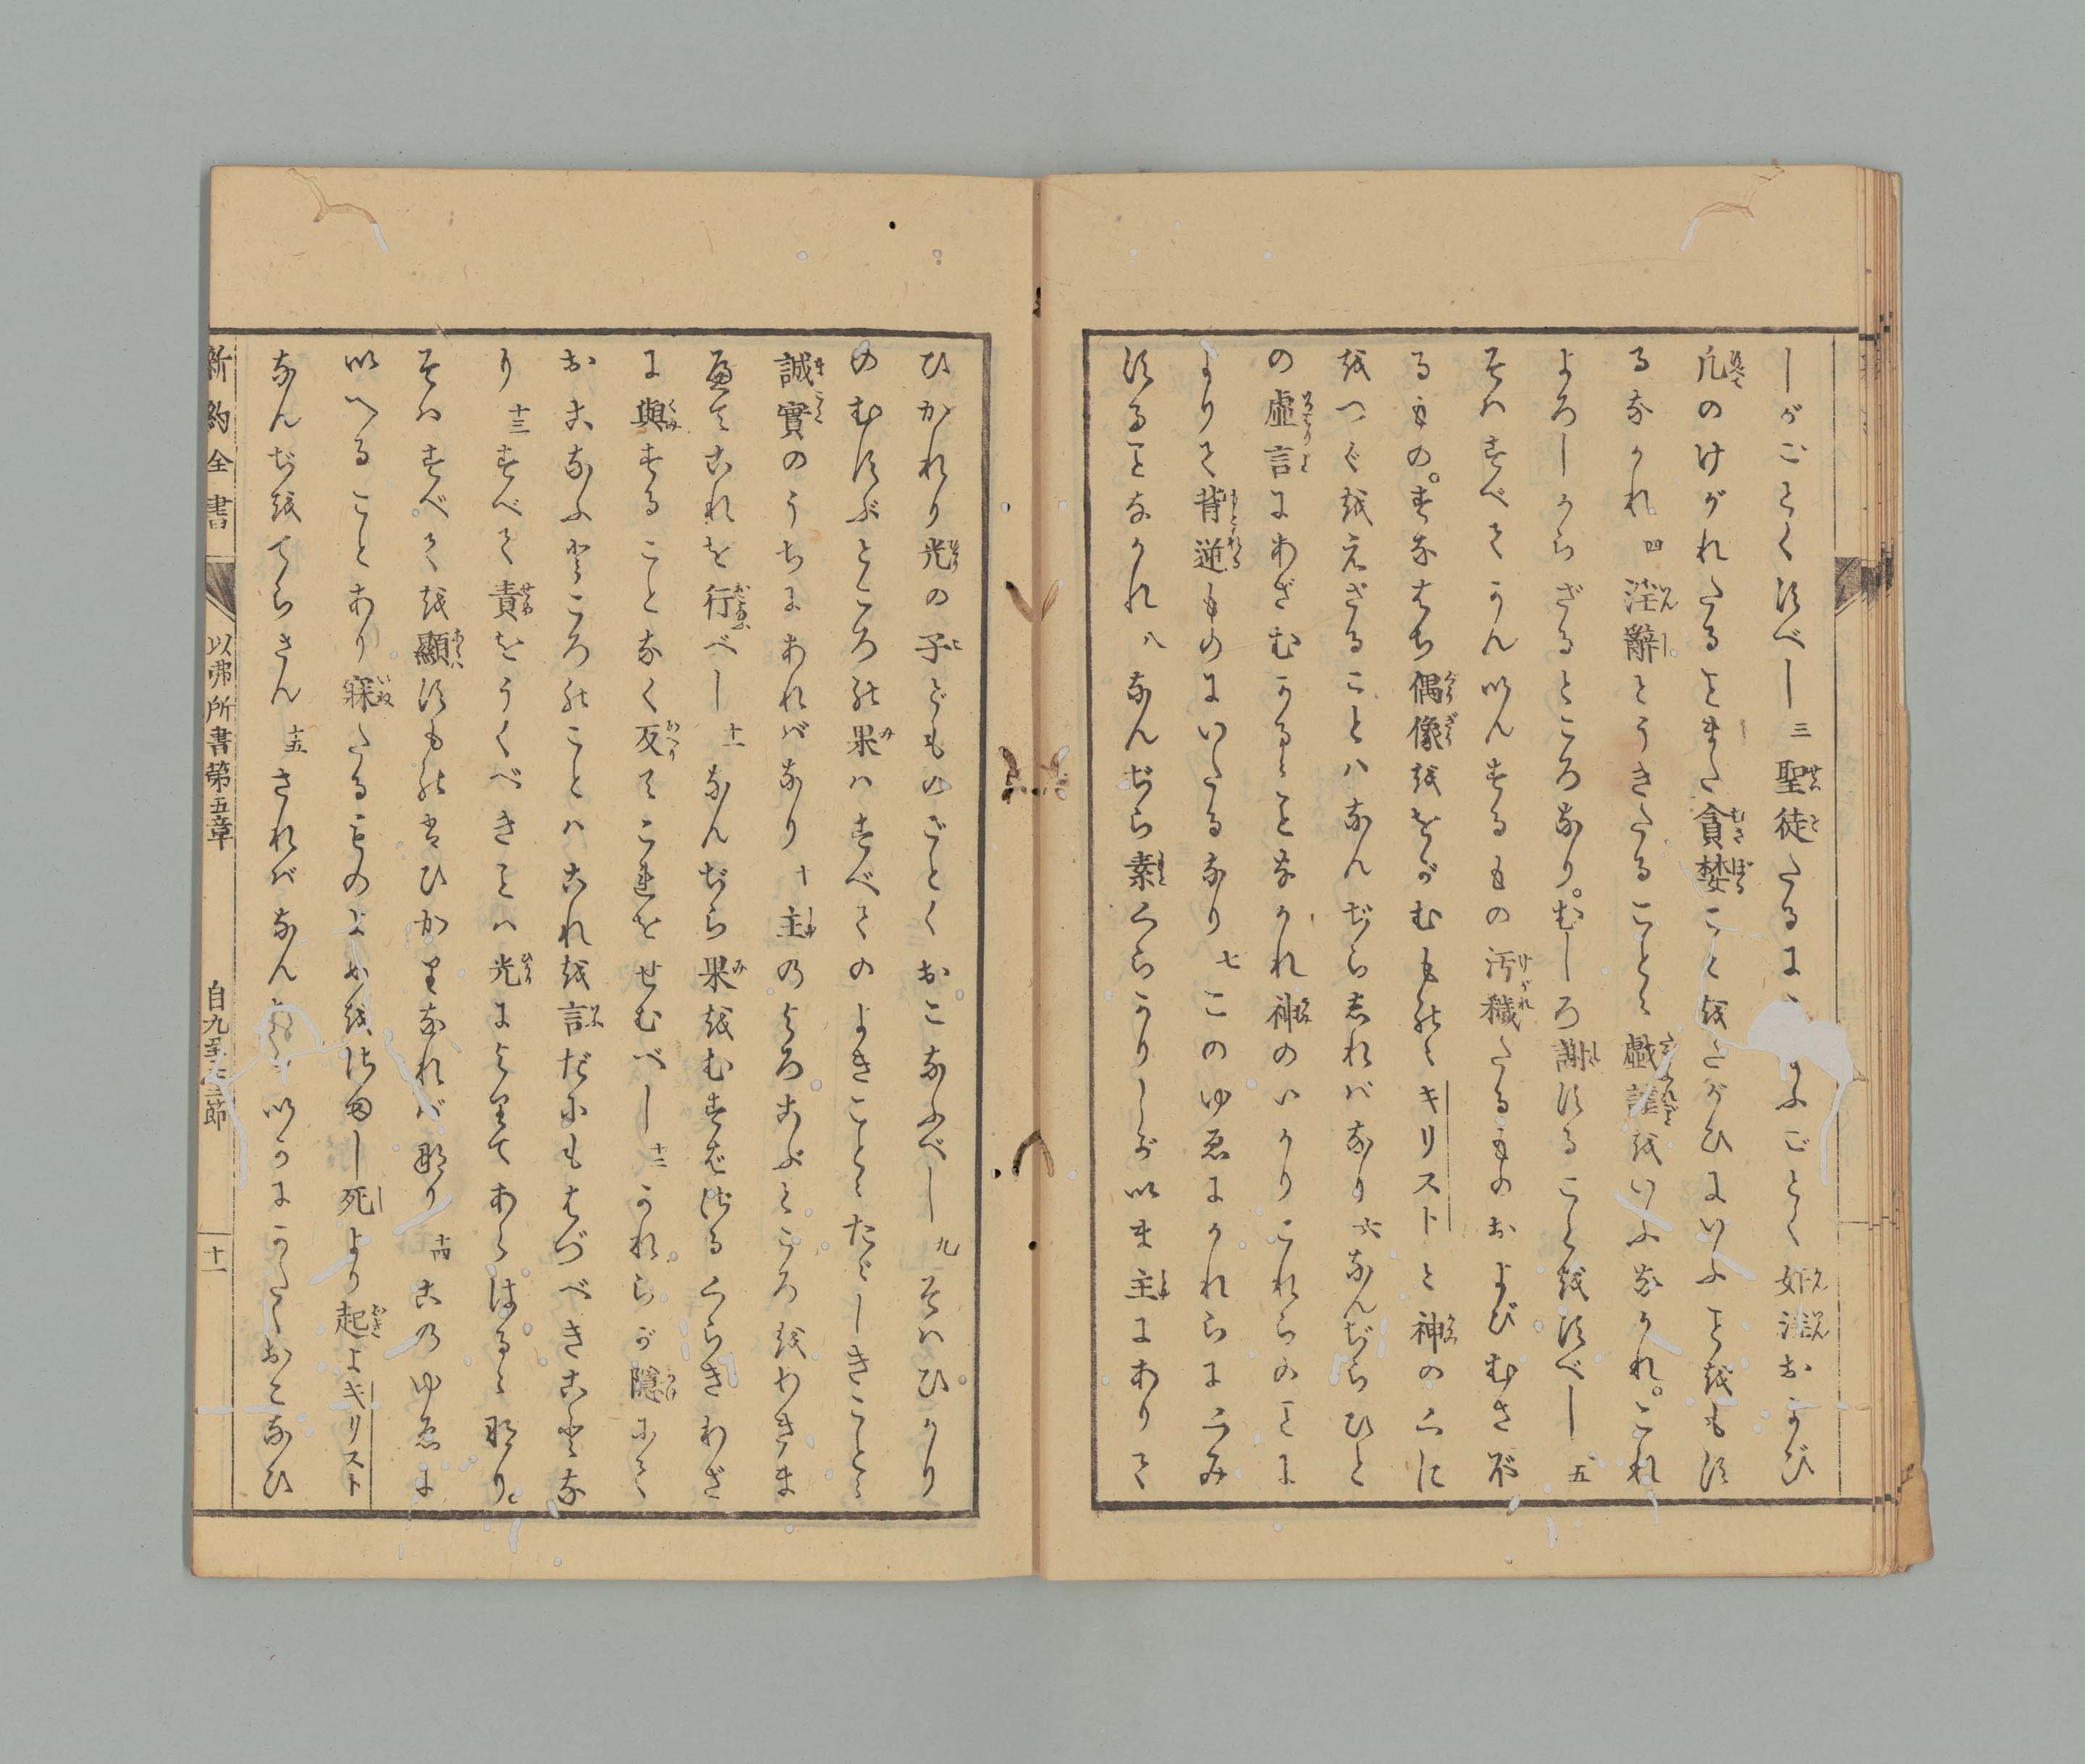 しがごとくすべし 三 聖徒たるに ふごとく奸淫および
凡のけがれたることまた貪婪ことをたがひにいふことをもす
るなかれ 四 淫辭とうきたることゝ戯謔をいふなかれ。これ
よろしからざるところなり。むしろ謝することをすべし 五
そはすべてかんいんするもの汚穢たるものおよびむさぼ
るもの。すなはち偶像ををがむものゝキリストと神のくに
をつぐをえざることハなんぢらしれバなり 六 なんぢらひと
の虚言にあざむかるゝことなかれ神のいかりこれらのことに
よりて背逆ものにいたるなり 七 このゆゑにかれらにくみ
することなかれ 八 なんぢら素くらかりしがいま主にありて
ひかれり光の子どものごとくおこなふべし 九 そハひかり
のむすぶところの果ハすべてのよきことゝたゞしきことゝ
誠實のうちにあれバなり 十 主のよろこぶところをわきま
へてこれを行べし 十一 なんぢら果をむすばざるくらきわざ
に與することなく反てこれをせむべし 十二 かれらが隠にて
おこなふところのことハこれを言だにもはづべきことな
り 十三 すべて責をうくべきことハ光によりてあらはるゝなり。
そハすべてを顯すものはひかりなれバなり 十四 このゆゑに
いへることあり寐たるものよめをさまし死より起よキリスト
なんぢをてらさん 十五 されバなん いかにかたくおこなひ
新約全書 以弗所書第五章 自九至十三節 十一